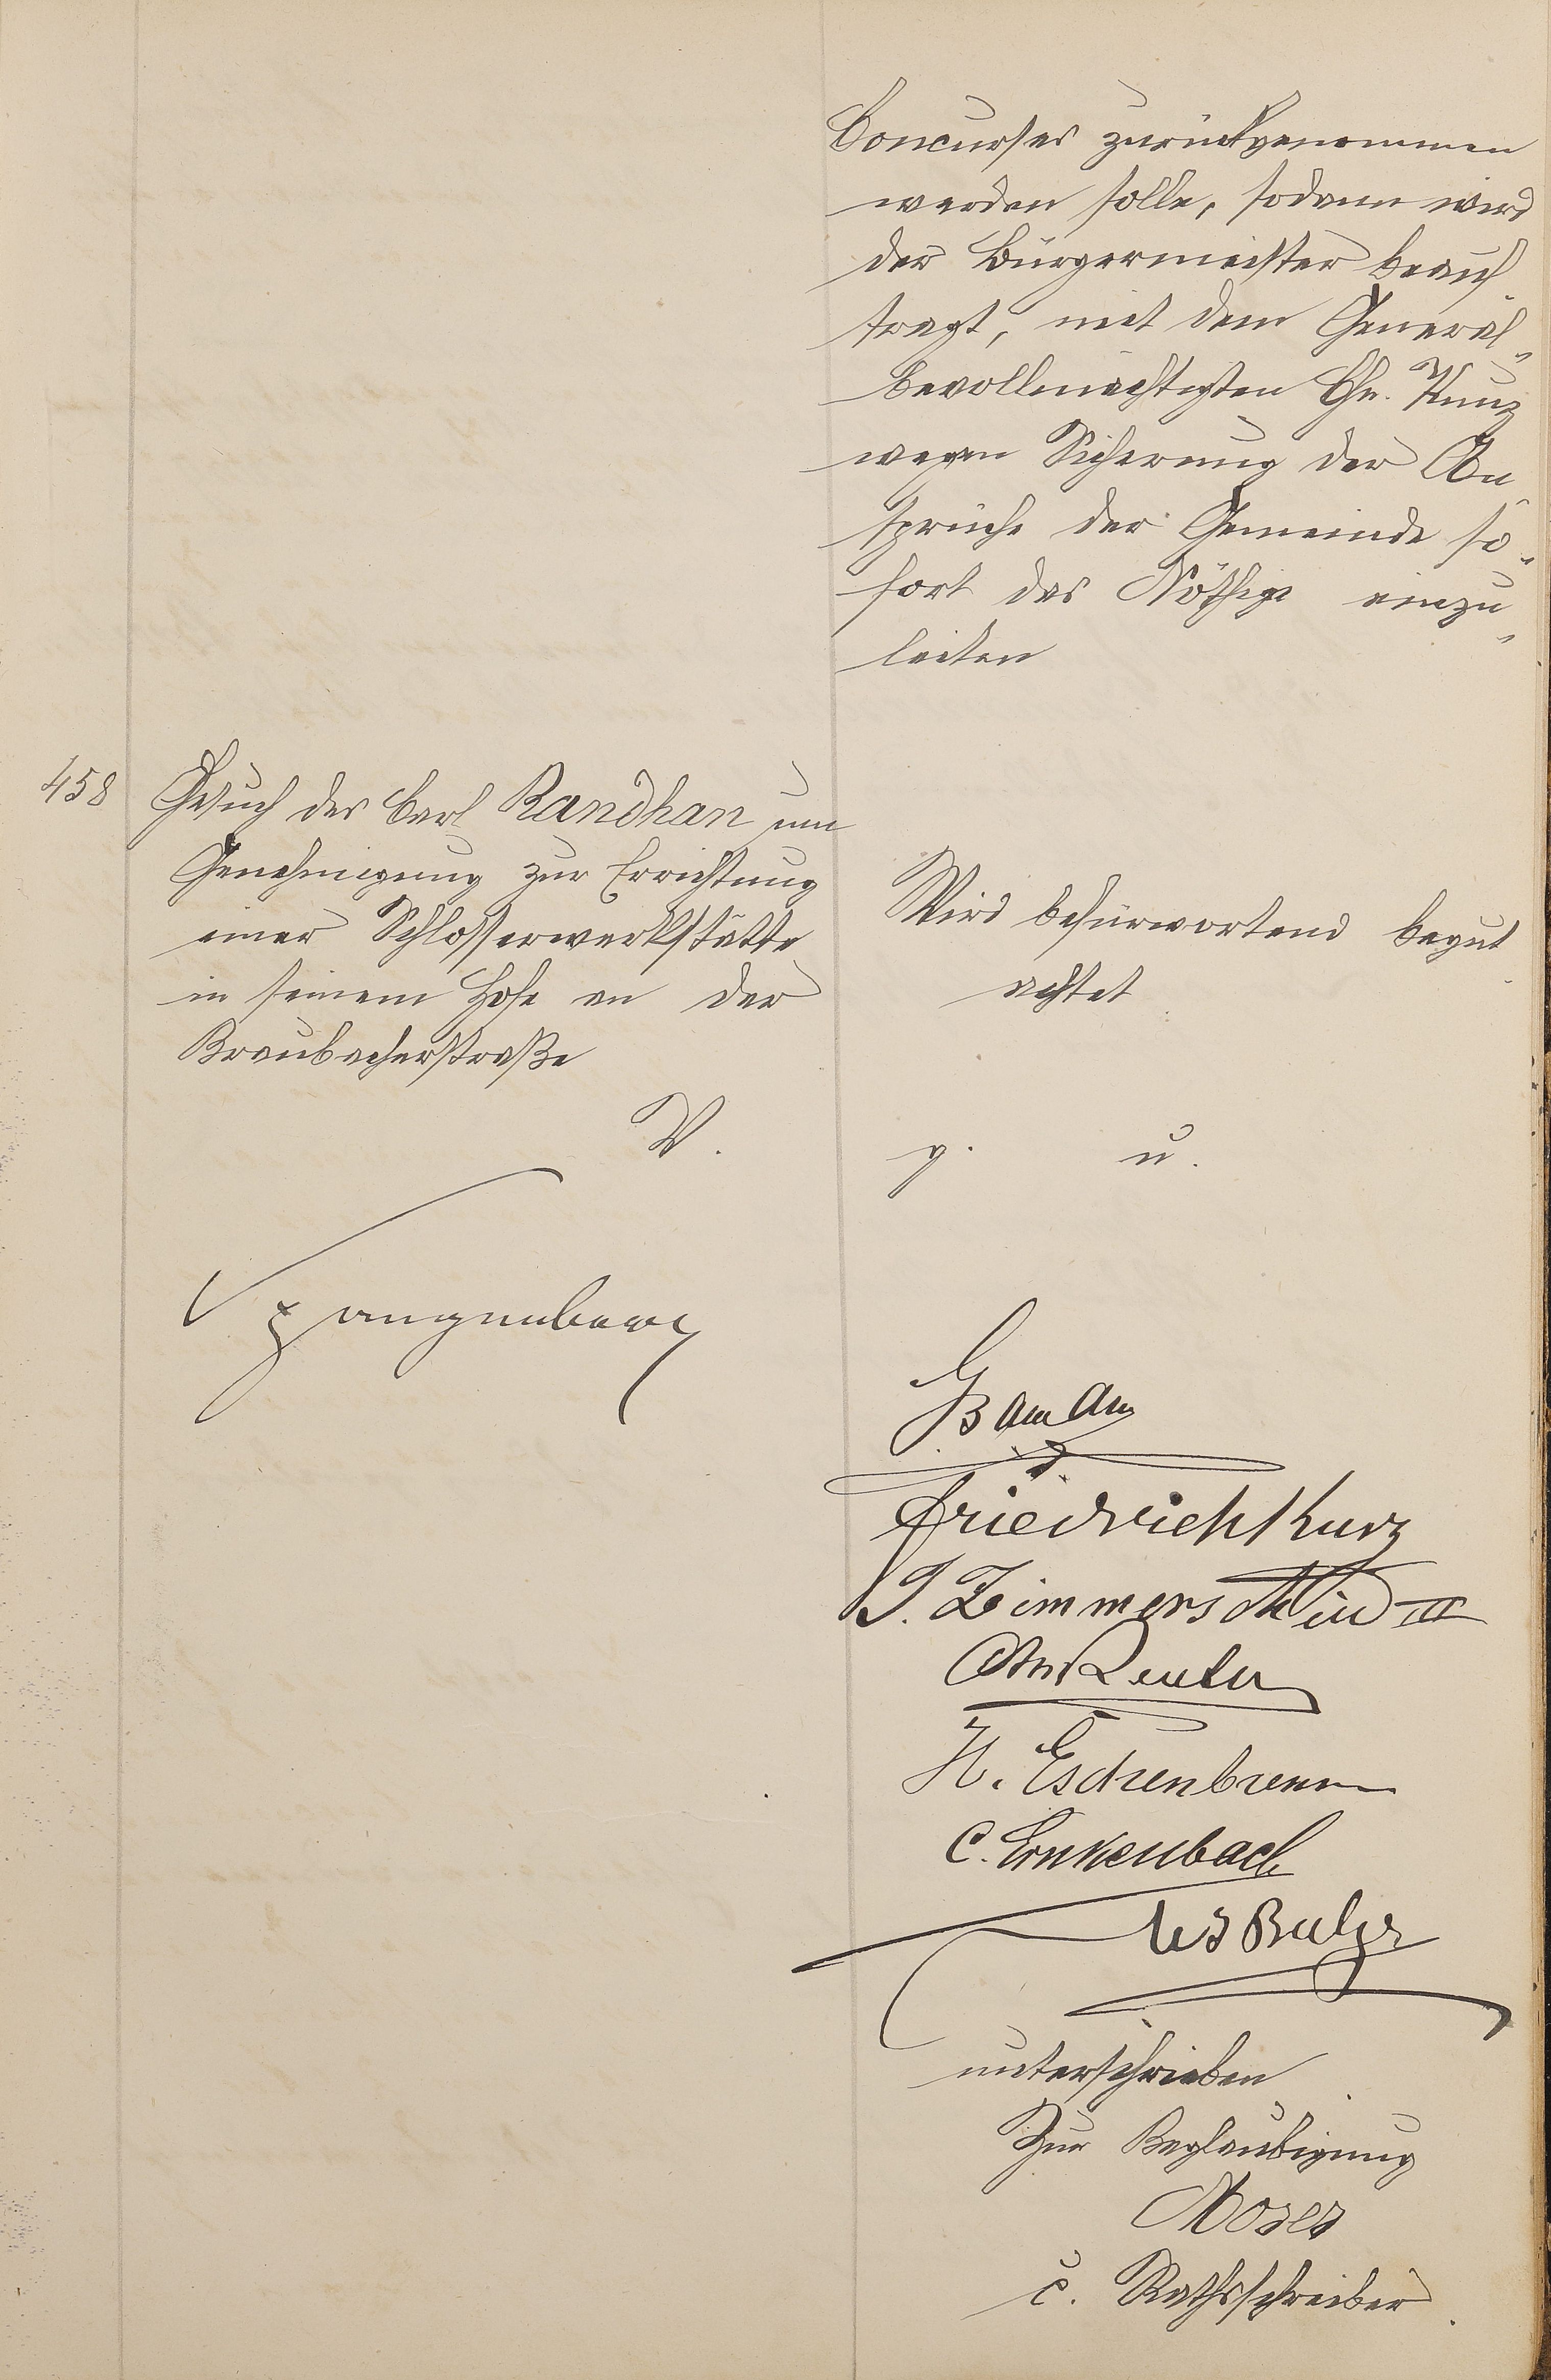 Concurses zurückgenommen
werden solle, sodann wird
der Bürgermeister beauf
tragt, mit dem General„
bevollmächtigten Chr. Kunz
wegen Sicherung der An
sprüche der Gemeinde so„
fort das Nöthige einzu„
leiten
458
Gesuch des Carl Randhan um
Genehmigung zur Errichtung
einer Schlosserwerkstätte
in seinem Hofe an der
Braubacherstraße
Wird befürwortend begut
achtet
V. g. u.
Friedrich Kurz
J. Zimmerschied III
Reuter
H. Eschenbrenner
C. Enkenbach
Balzer
unterschrieben
Zur Beglaubigung
Moser
c. Rathsschreiber